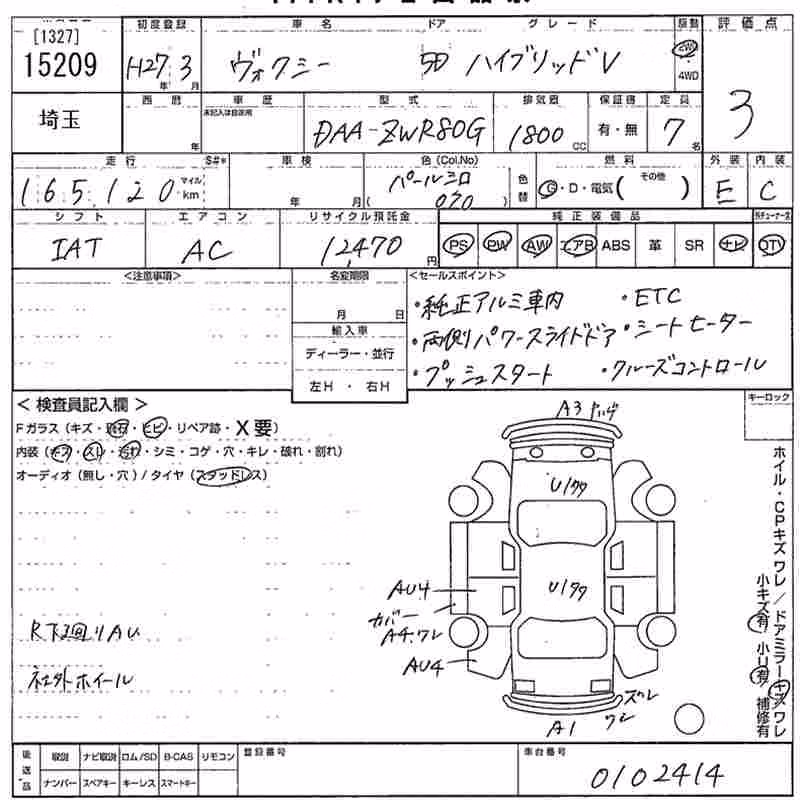 [1327]
15209
初度登録
車名
ドア
グレード
駆動
評価点
H27年3月
ヴォクシー
5D
ハイブリッドV
2WD・4WD
3
埼玉
西暦
年
車歴
未記入は自家用
型式
DAA-ZWR80G
排気量
1800 CC
保証書
有・無
定員
7名
走行
S#*
車検
色(Col.No)
燃料
外装
内装
165,120
マイル
km
年 月
パールシロ
( 070 )
色替
G・D・電気( その他 )
E
C
シフト
エアコン
リサイクル預託金
純正装備品
IAT
AC
12470円
PS PW AW エアB ABS 革 SR ナビ TV
<注意事項>
名変期限
月 日
輸入車
ディーラー・並行
左H ・ 右H
<セールスポイント>
・純正アルミ車内 ・ETC
・両側パワースライドドア ・シートヒーター
・プッシュスタート ・クルーズコントロール
<検査員記入欄>
Fガラス(キズ・飛石・ヒビ・リペア跡・X要)
内装(キズ・スレ・汚れ・シミ・コゲ・穴・キレ・破れ・割れ)
オーディオ(無し・穴)/タイヤ(スタッドレス)
キーロック
A3
U1
U1
AU4
カバー
A4.ワレ
AU4
A1
ズレ
ワレ
R下廻りAU
社外ホイール
ホイル・CPキズワレ/ドアミラーキズワレ
小キズ有 小U有 補修有
後送品
取説 ナビ取説 ロム/SD B-CAS リモコン
ナンバー スペアキー キーレス スマートキー
登録番号
車台番号
0102414